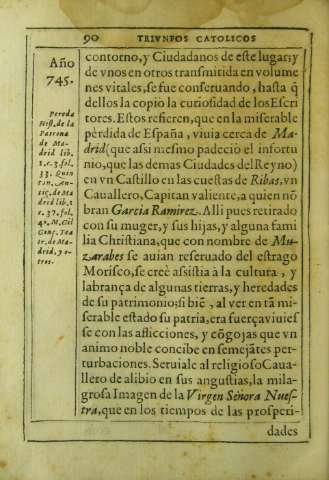 90 TRIVNFOS CATOLICOS
Año
745.
Pereda
Hist. de la
Patrona
de Ma-
drid lib.
1. c. 3. fol.
33. Quin
tan. An-
tig. de Ma
drid lib. 1
c. 37. fol.
42. M. Gil
Gonç. Tea
tr. de Ma-
drid, y o-
tros.
contorno, y Ciudadanos de este lugar; y
de vnos en otros transmitida en volume
nes vitales, se fue conseruando, hasta q̃
dellos la copiò la curiosidad de los Escri
tores. Estos refieren, que en la miserable
pèrdida de España, viuia cerca de Ma-
drid (que assi mesmo padeciò el infortu
nio, que las demas Ciudades del Reyno)
en vn Castillo en las cuestas de Ribas, vn
Cauallero, Capitan valiente, a quien nõ
bran Garcia Ramirez. Alli pues retirado
con su muger, y sus hijas, y alguna fami
lia Christiana, que con nombre de Mu-
zarabes se auian reseruado del estrago
Morisco, se creè assistia à la cultura, y
labrança de algunas tierras, y heredades
de su patrimonio; si biẽ, al ver en tã mi-
serable estado su patria, era fuerça viuies
se con las aflicciones, y cõgojas que vn
animo noble concibe en semejãtes per-
turbaciones. Seruiale al religioso Caua-
llero de alibio en sus angustias, la mila-
grosa Imagen de la Virgen Señora Nues-
tra, que en los tiempos de las prosperi-
dades